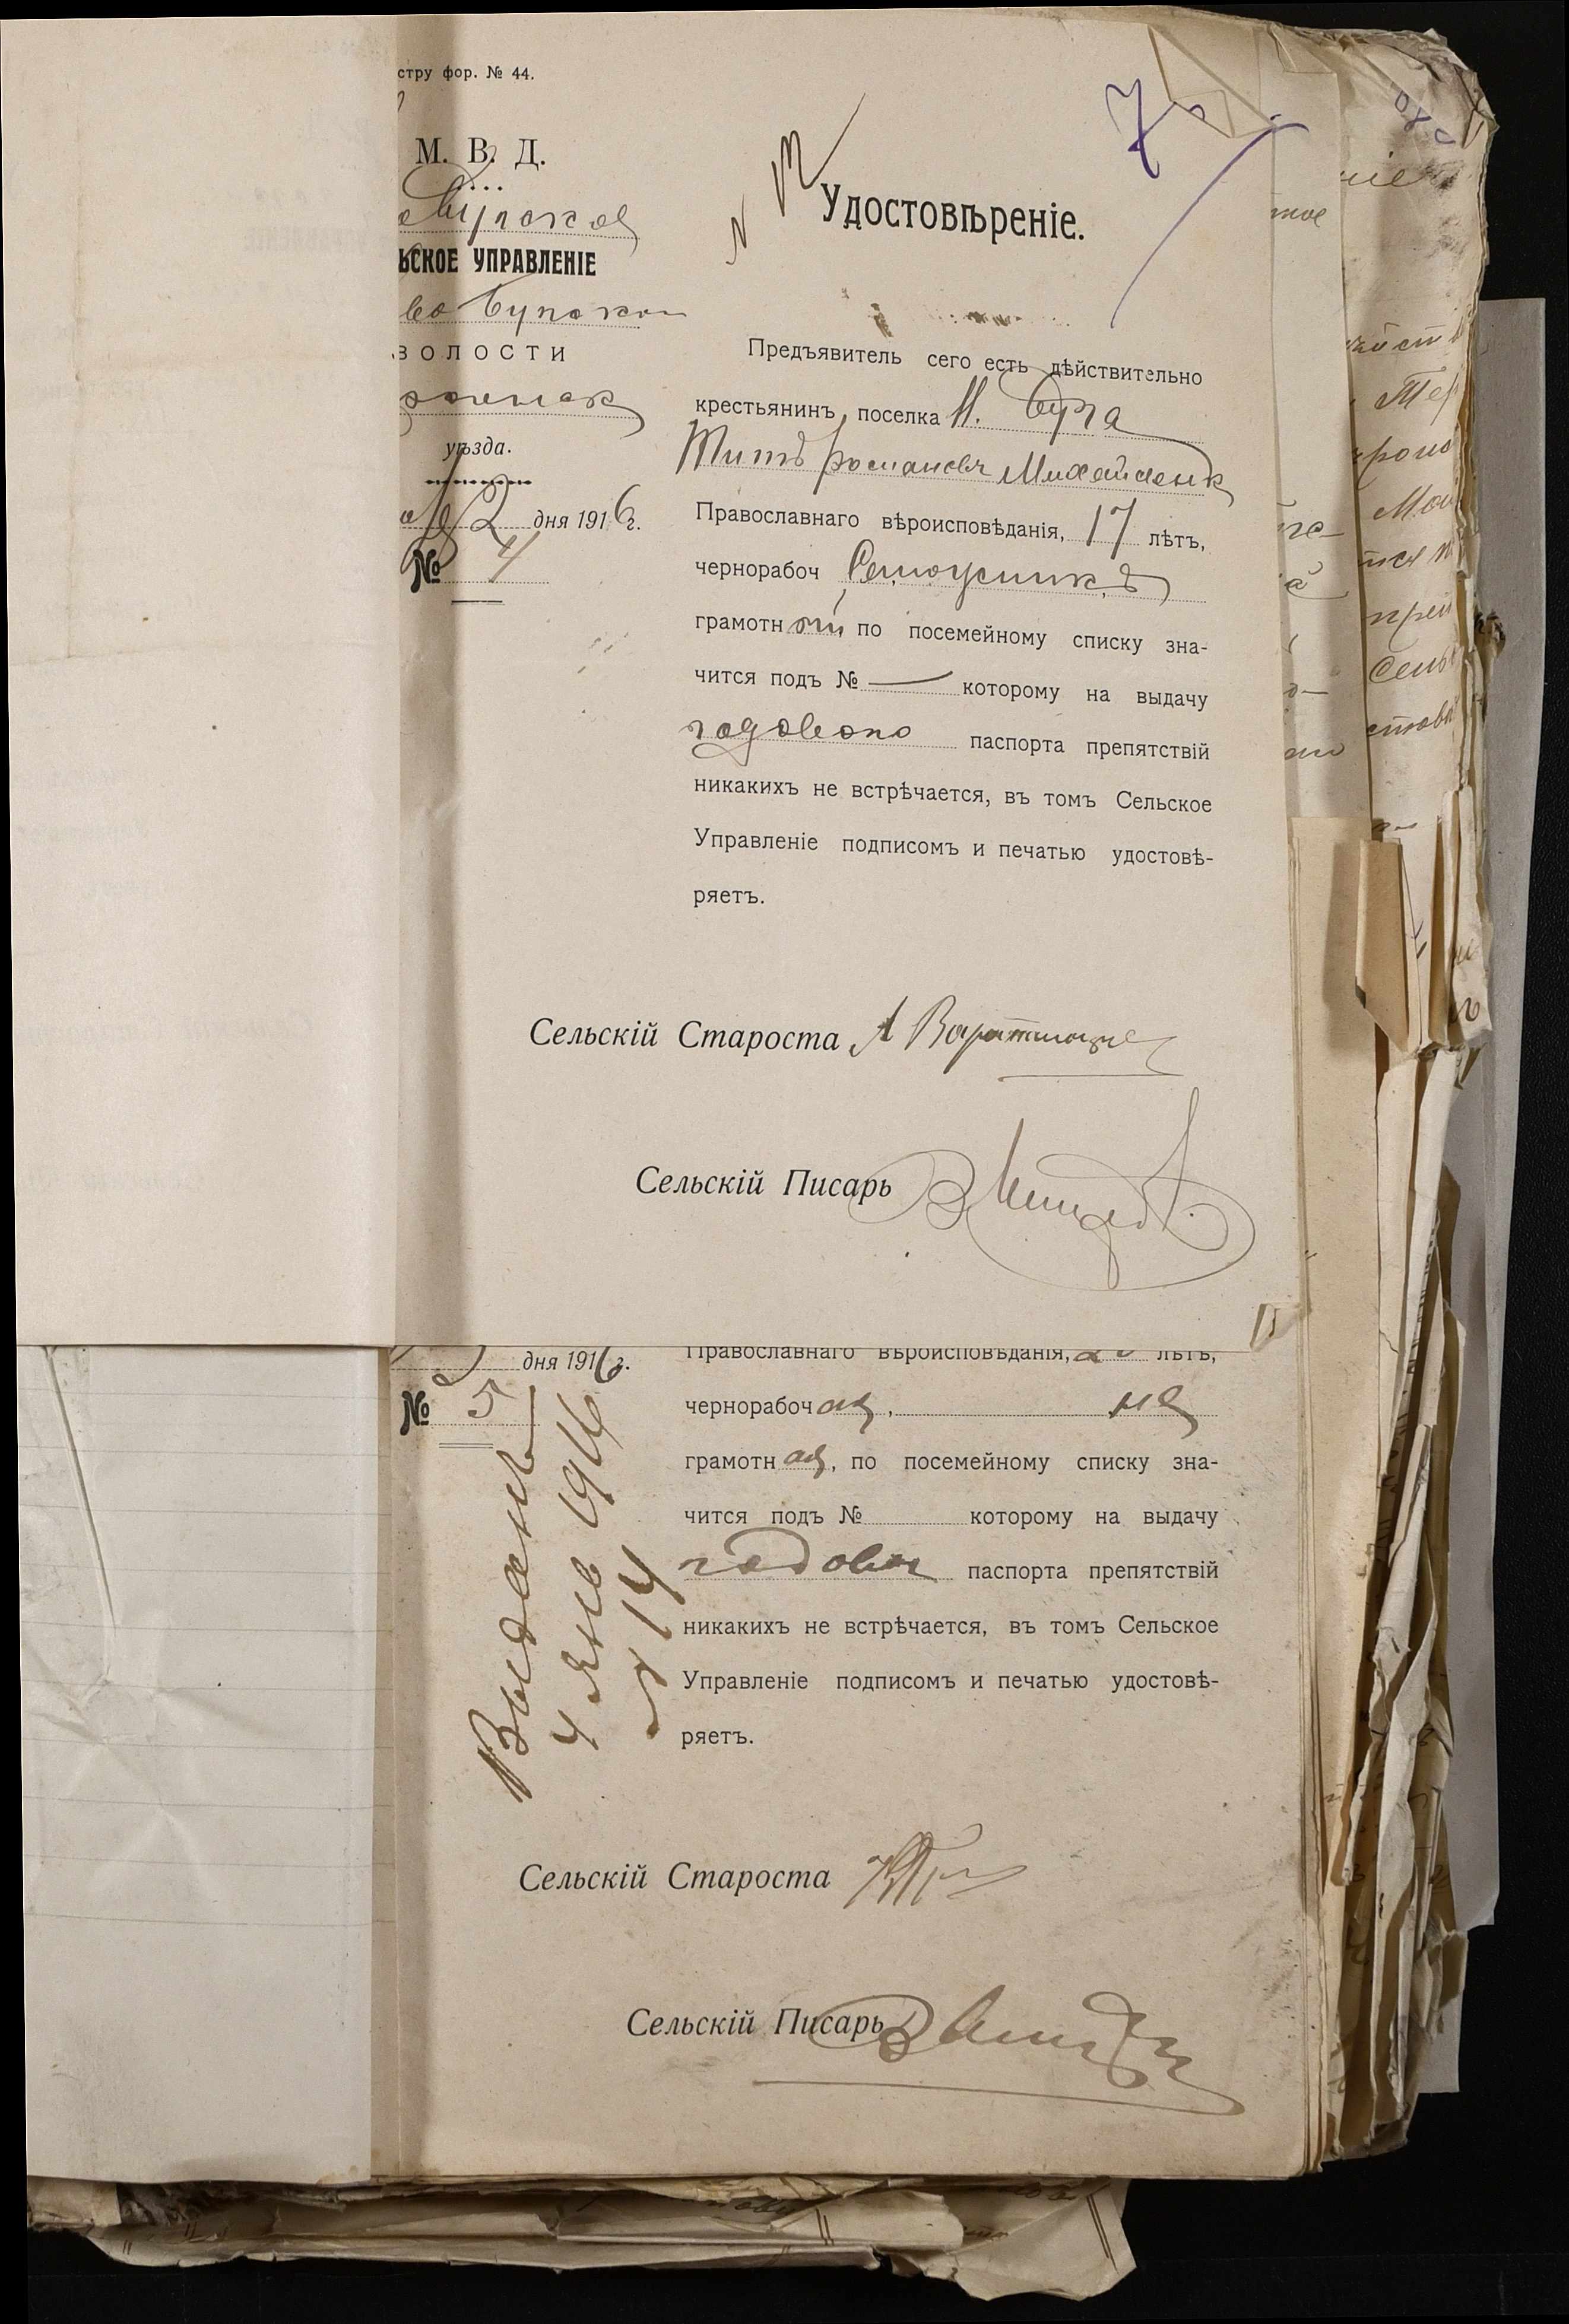 стру фор. № 44.
М. В. Д.
ЬСКОЕ УПРАВЛЕНІЕ
волости
уѣзда.
2 дня 1916 г.
№ 4
Удостовѣреніе.
Предъявитель сего есть дѣйствительно
крестьянинъ поселка Н. Буга
Титъ Романовъ Михайленк
Православнаго вѣроисповѣданія, 17 лѣтъ,
чернорабоч
грамотн ый, по посемейному списку зна-
чится подъ № — которому на выдачу
годового паспорта препятствій
никакихъ не встрѣчается, въ томъ Сельское
Управленіе подписомъ и печатью удостовѣ-
ряетъ.
Сельскій Староста
Сельскій Писарь
дня 1916 г.
№ 5
Выданъ
4 янв 1916
№ 14
Православнаго вѣроисповѣданія, лѣтъ,
чернорабоч ая, не
грамотн ая, по посемейному списку зна-
чится подъ № которому на выдачу
годовой паспорта препятствій
никакихъ не встрѣчается, въ томъ Сельское
Управленіе подписомъ и печатью удостовѣ-
ряетъ.
Сельскій Староста
Сельскій Писарь